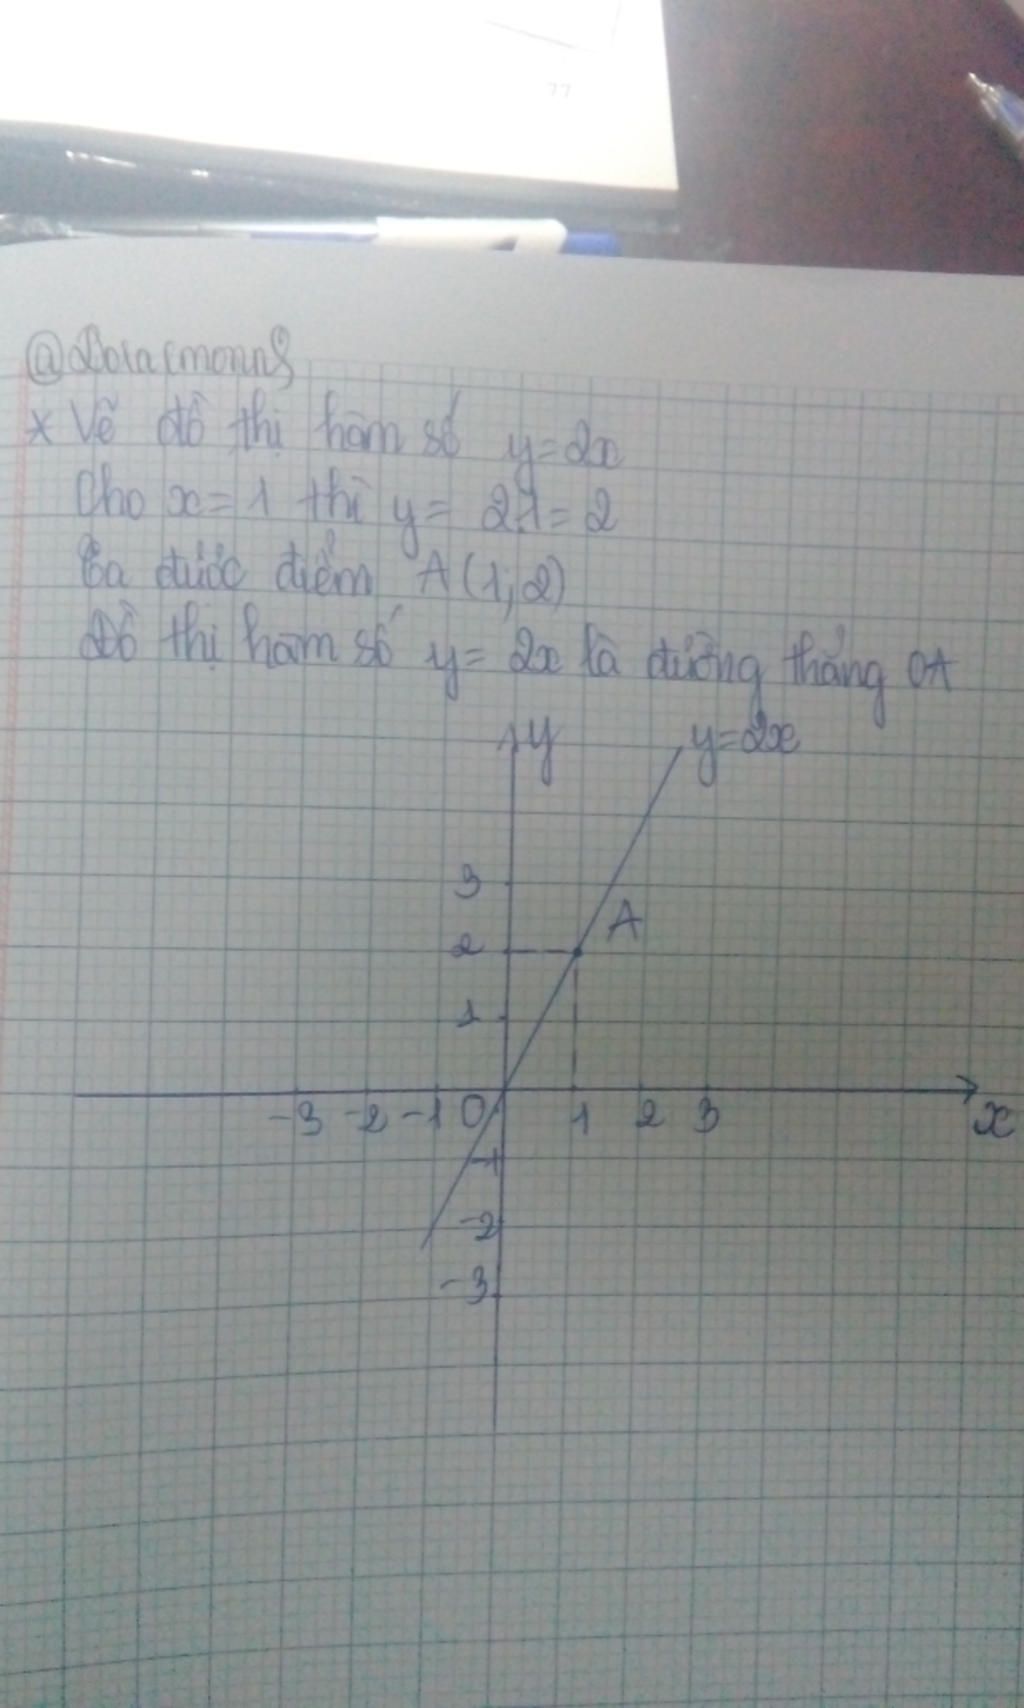 77
@Doraemonns
* Vẽ đồ thị hàm số y=2x
Cho x=1 thì y= 2.1=2
Ta được điểm A(1;2)
Đồ thị hàm số y= 2x là đường thẳng OA
y y=2x
3
A
2
1
-3 -2 -1 O 1 2 3 x
-1
-2
-3